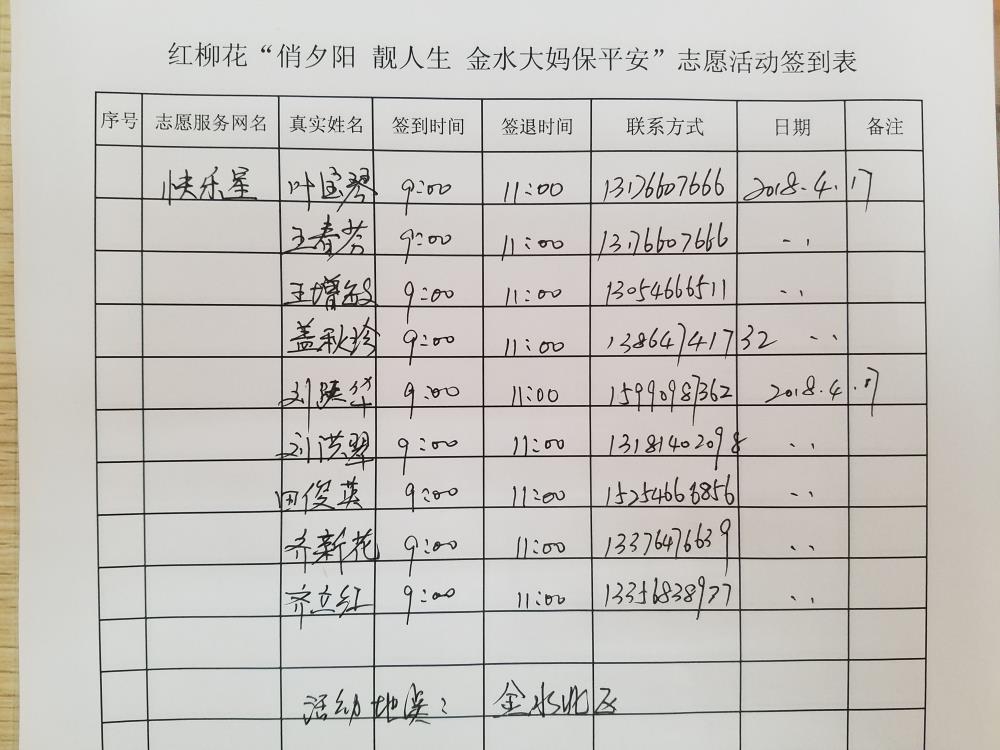 红柳花“俏夕阳 靓人生 金水大妈保平安”志愿活动签到表
序号 志愿服务网名 真实姓名 签到时间 签退时间 联系方式 日期 备注
快乐星 叶宝琴 9:00 11:00 13176607666 2018.4.17
王春芳 9:00 11:00 13176607666 ..
王增敏 9:00 11:00 13054666511 ..
盖秋珍 9:00 11:00 13864741732 ..
刘 华 9:00 11:00 15990987362 2018.4.17
刘洪翠 9:00 11:00 13181402098 ..
田俊英 9:00 11:00 15254666856 ..
齐新花 9:00 11:00 13376476639 ..
齐立红 9:00 11:00 13356838977 ..
活动地点: 金水北区